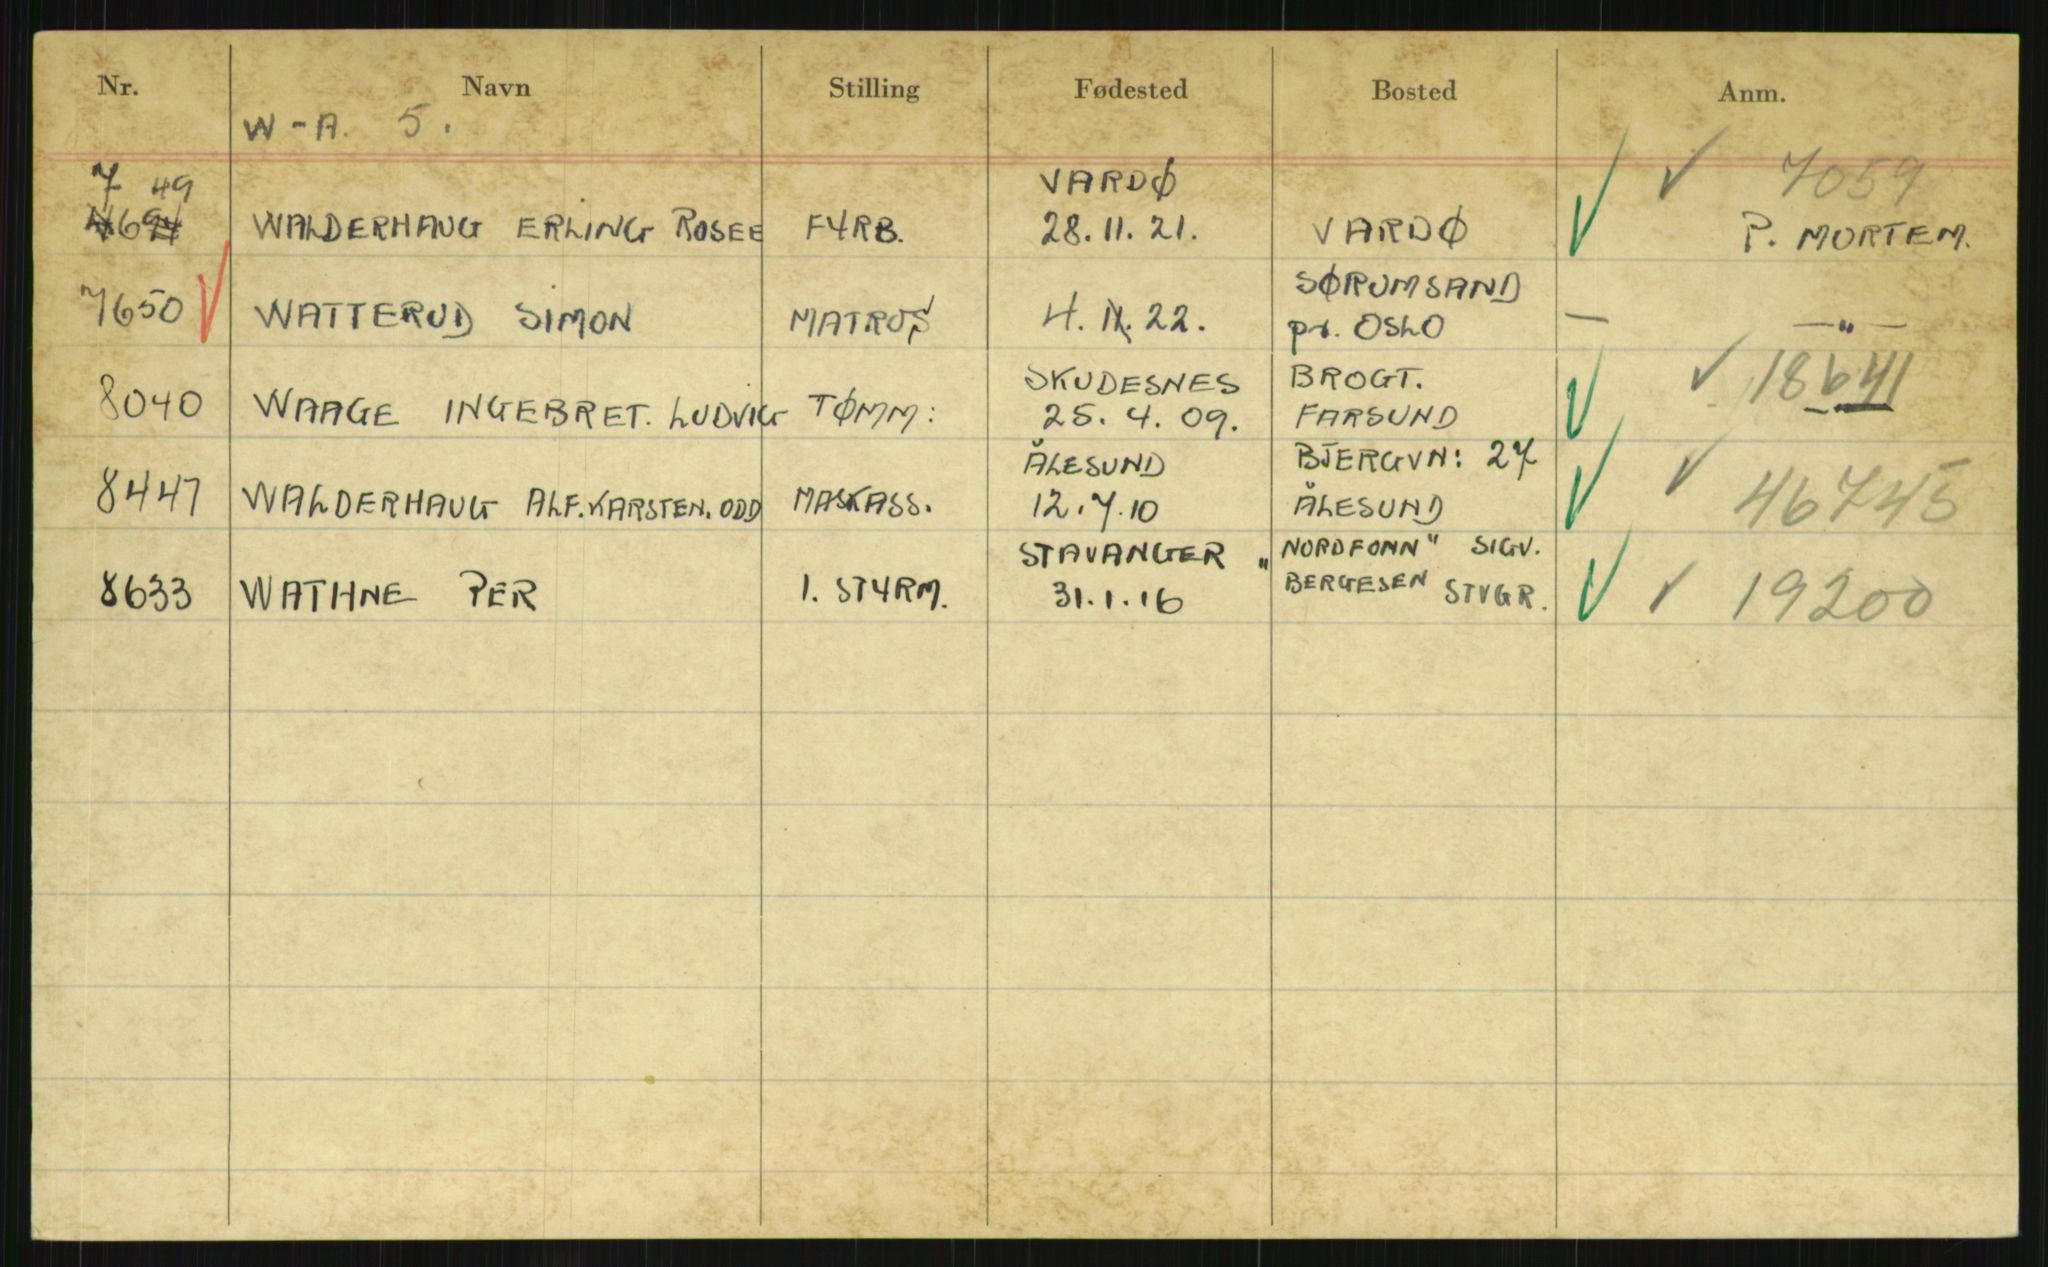 Nr. Navn Stilling Fødested Bosted Anm.
W-A. 5.
7 49 VARDØ 7059
WALDERHAUG ERLING ROSEE FYRB. 28.11.21. VARDØ P. MORTEM.
SØRUMSAND
7650 WATTERUD SIMON MATROS 4. 22. pr. OSLO — —"—
SKUDESNES BROGT. 18641
8040 WAAGE INGEBRET. LUDVIG TØMM: 25.4.09. FARSUND
ÅLESUND BJERGVN: 27
8447 WALDERHAUG ALF.KARSTEN.ODD MASKASS. 12.7.10 ÅLESUND 46745
STAVANGER "NORDFONN" SIGV.
8633 WATHNE PER 1. STYRM. 31.1.16 BERGESEN STVGR. 19200